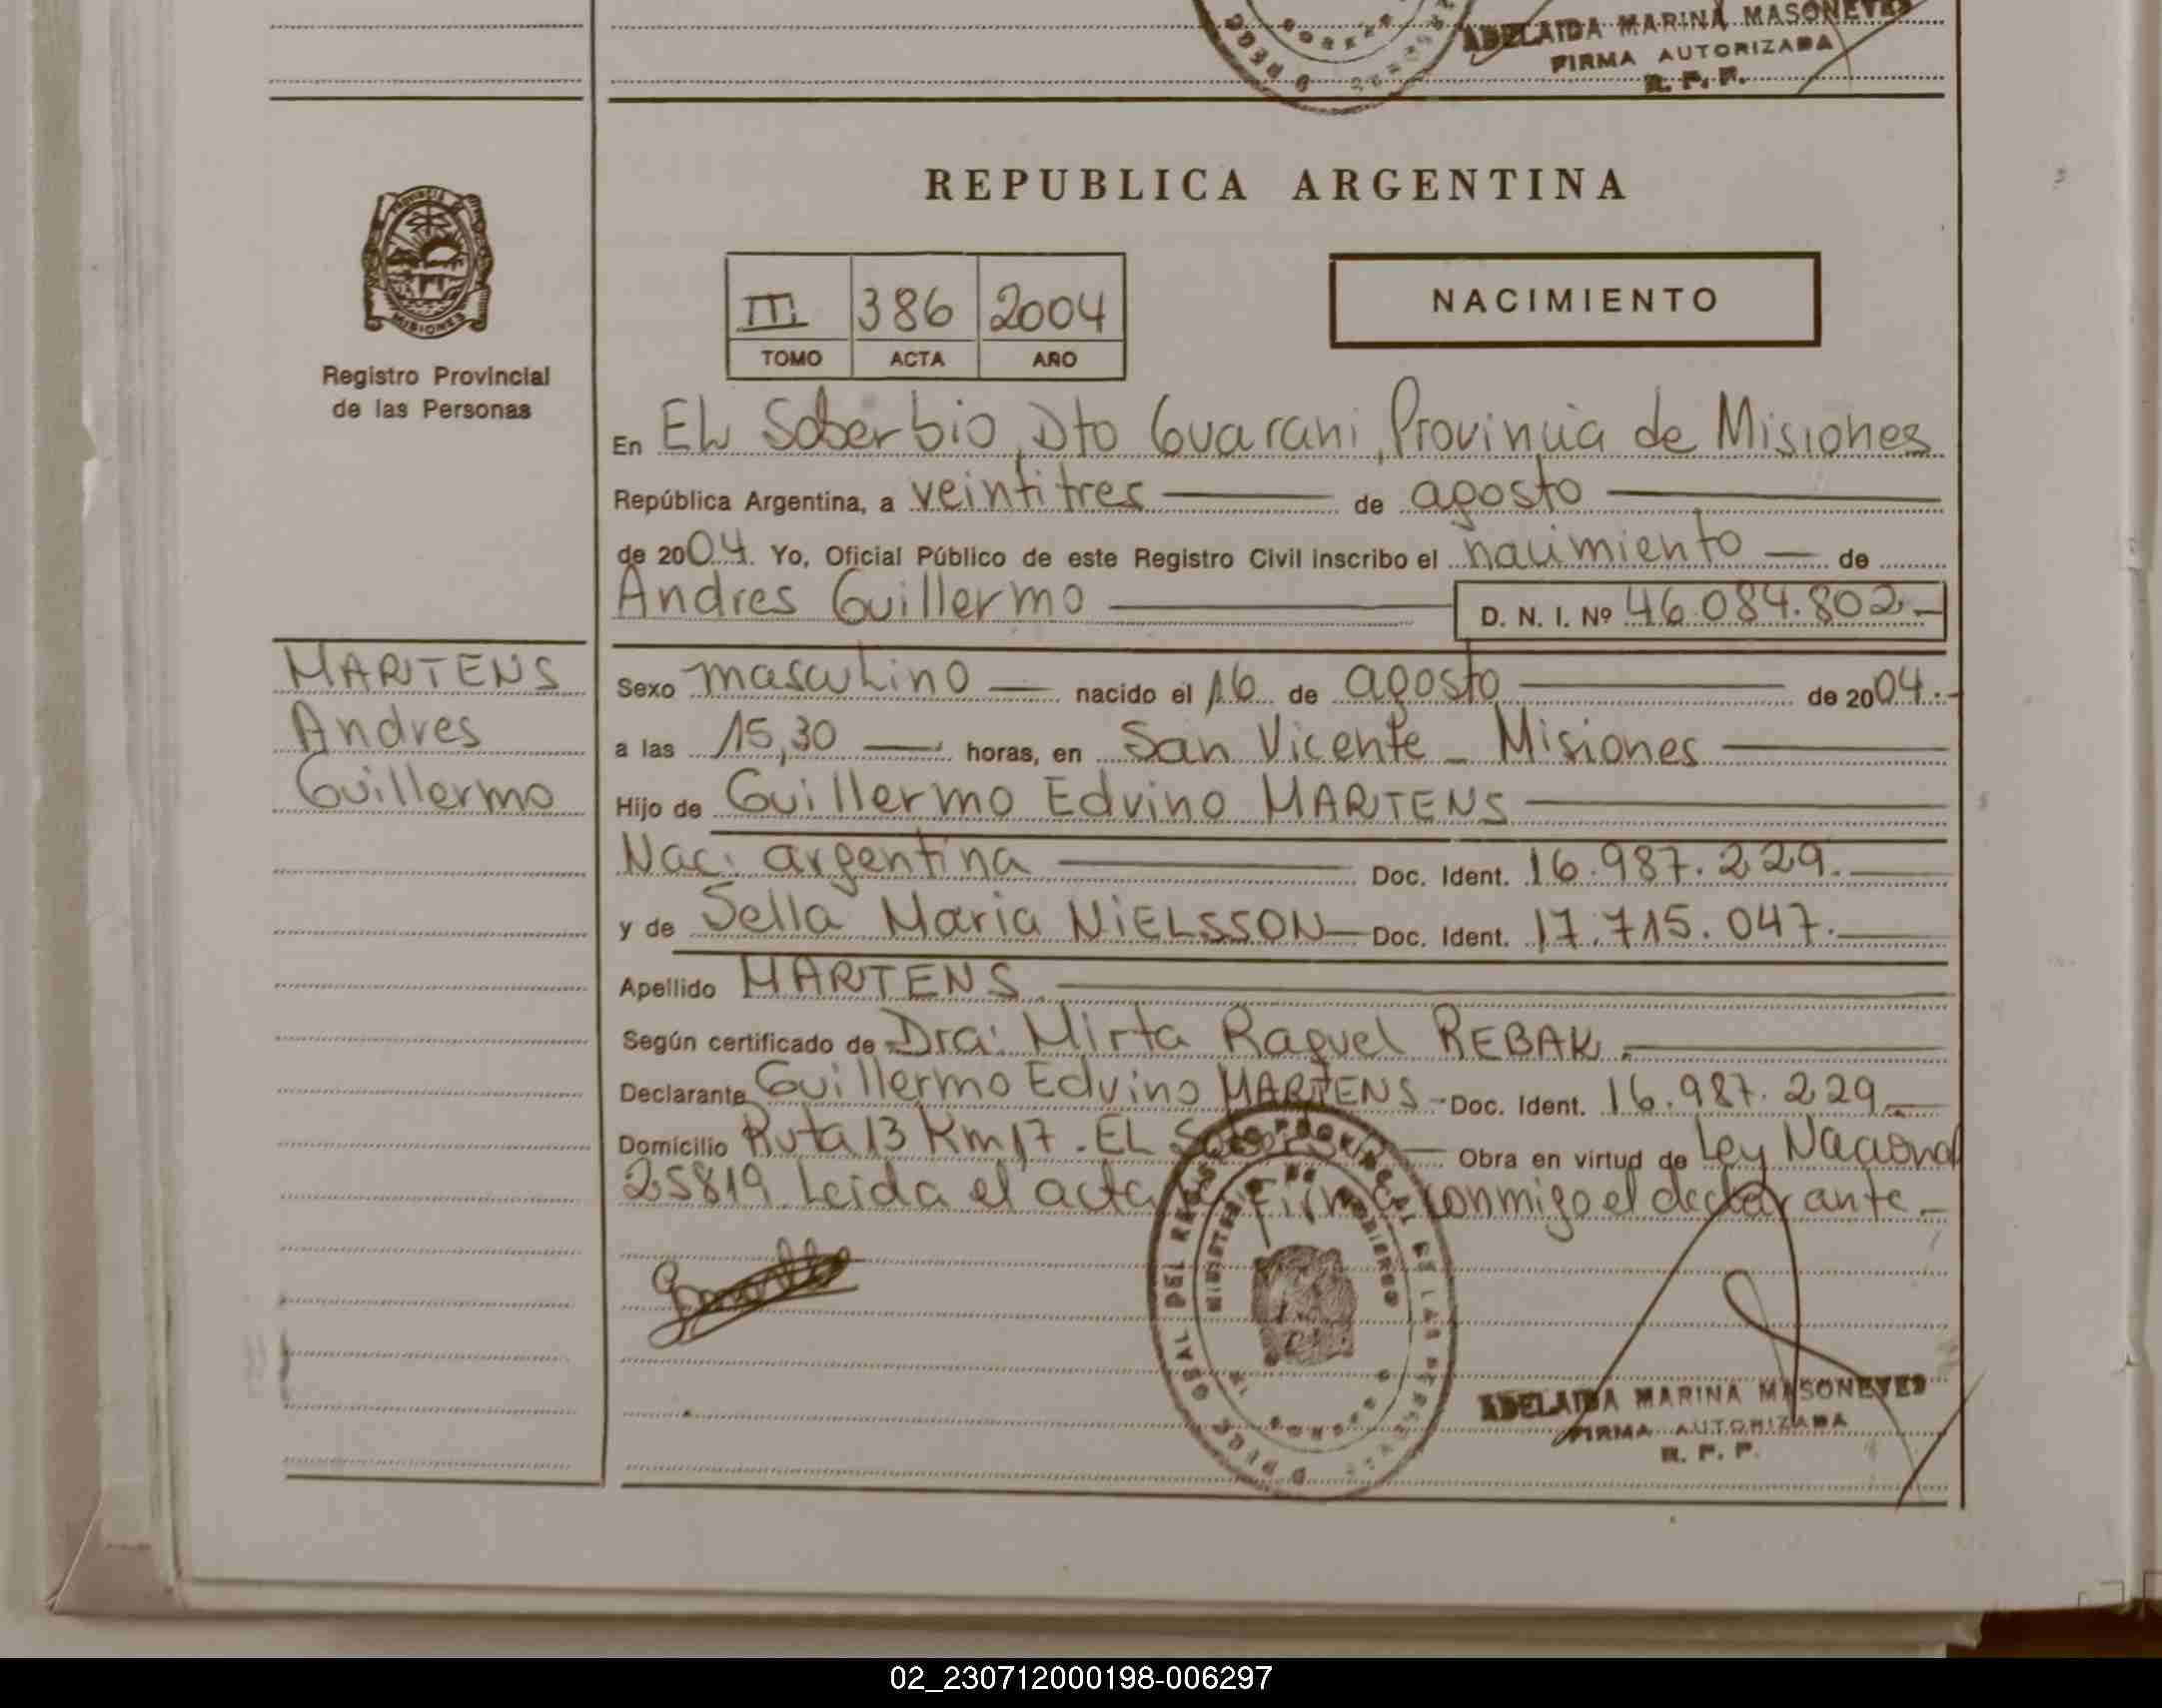 ADELAIDA MARINA MASONEVES
FIRMA AUTORIZADA
R. P. P.
REPUBLICA ARGENTINA
PROVINCIA
MISIONES
Registro Provincial
de las Personas
III 386 2004
TOMO ACTA AÑO
NACIMIENTO
En EL Soberbio, Dto Guarani, Provincia de Misiones
República Argentina, a veintitres de agosto
de 2004. Yo, Oficial Público de este Registro Civil inscribo el nacimiento de
Andres Guillermo D. N. I. Nº 46.084.802
MARTENS
Andres
Guillermo
Sexo masculino nacido el 16 de agosto de 2004.
a las 15,30 horas, en San Vicente - Misiones
Hijo de Guillermo Edvino MARTENS
Nac: argentina Doc. Ident. 16.987.229.
y de Sella Maria NIELSSON Doc. Ident. 17.715.047.
Apellido MARTENS
Según certificado de Dra: Mirta Raquel REBAK.
Declarante Guillermo Edvino MARTENS - Doc. Ident. 16.987.229
Domicilio Ruta 13 Km 17 - EL Soberbio Obra en virtud de Ley Nacional
25819 Leida el acta Firma conmigo el declarante
MINISTERIO DE GOBIERNO
ADELAIDA MARINA MASONEVES
FIRMA AUTORIZADA
R. P. P.
02_230712000198-006297